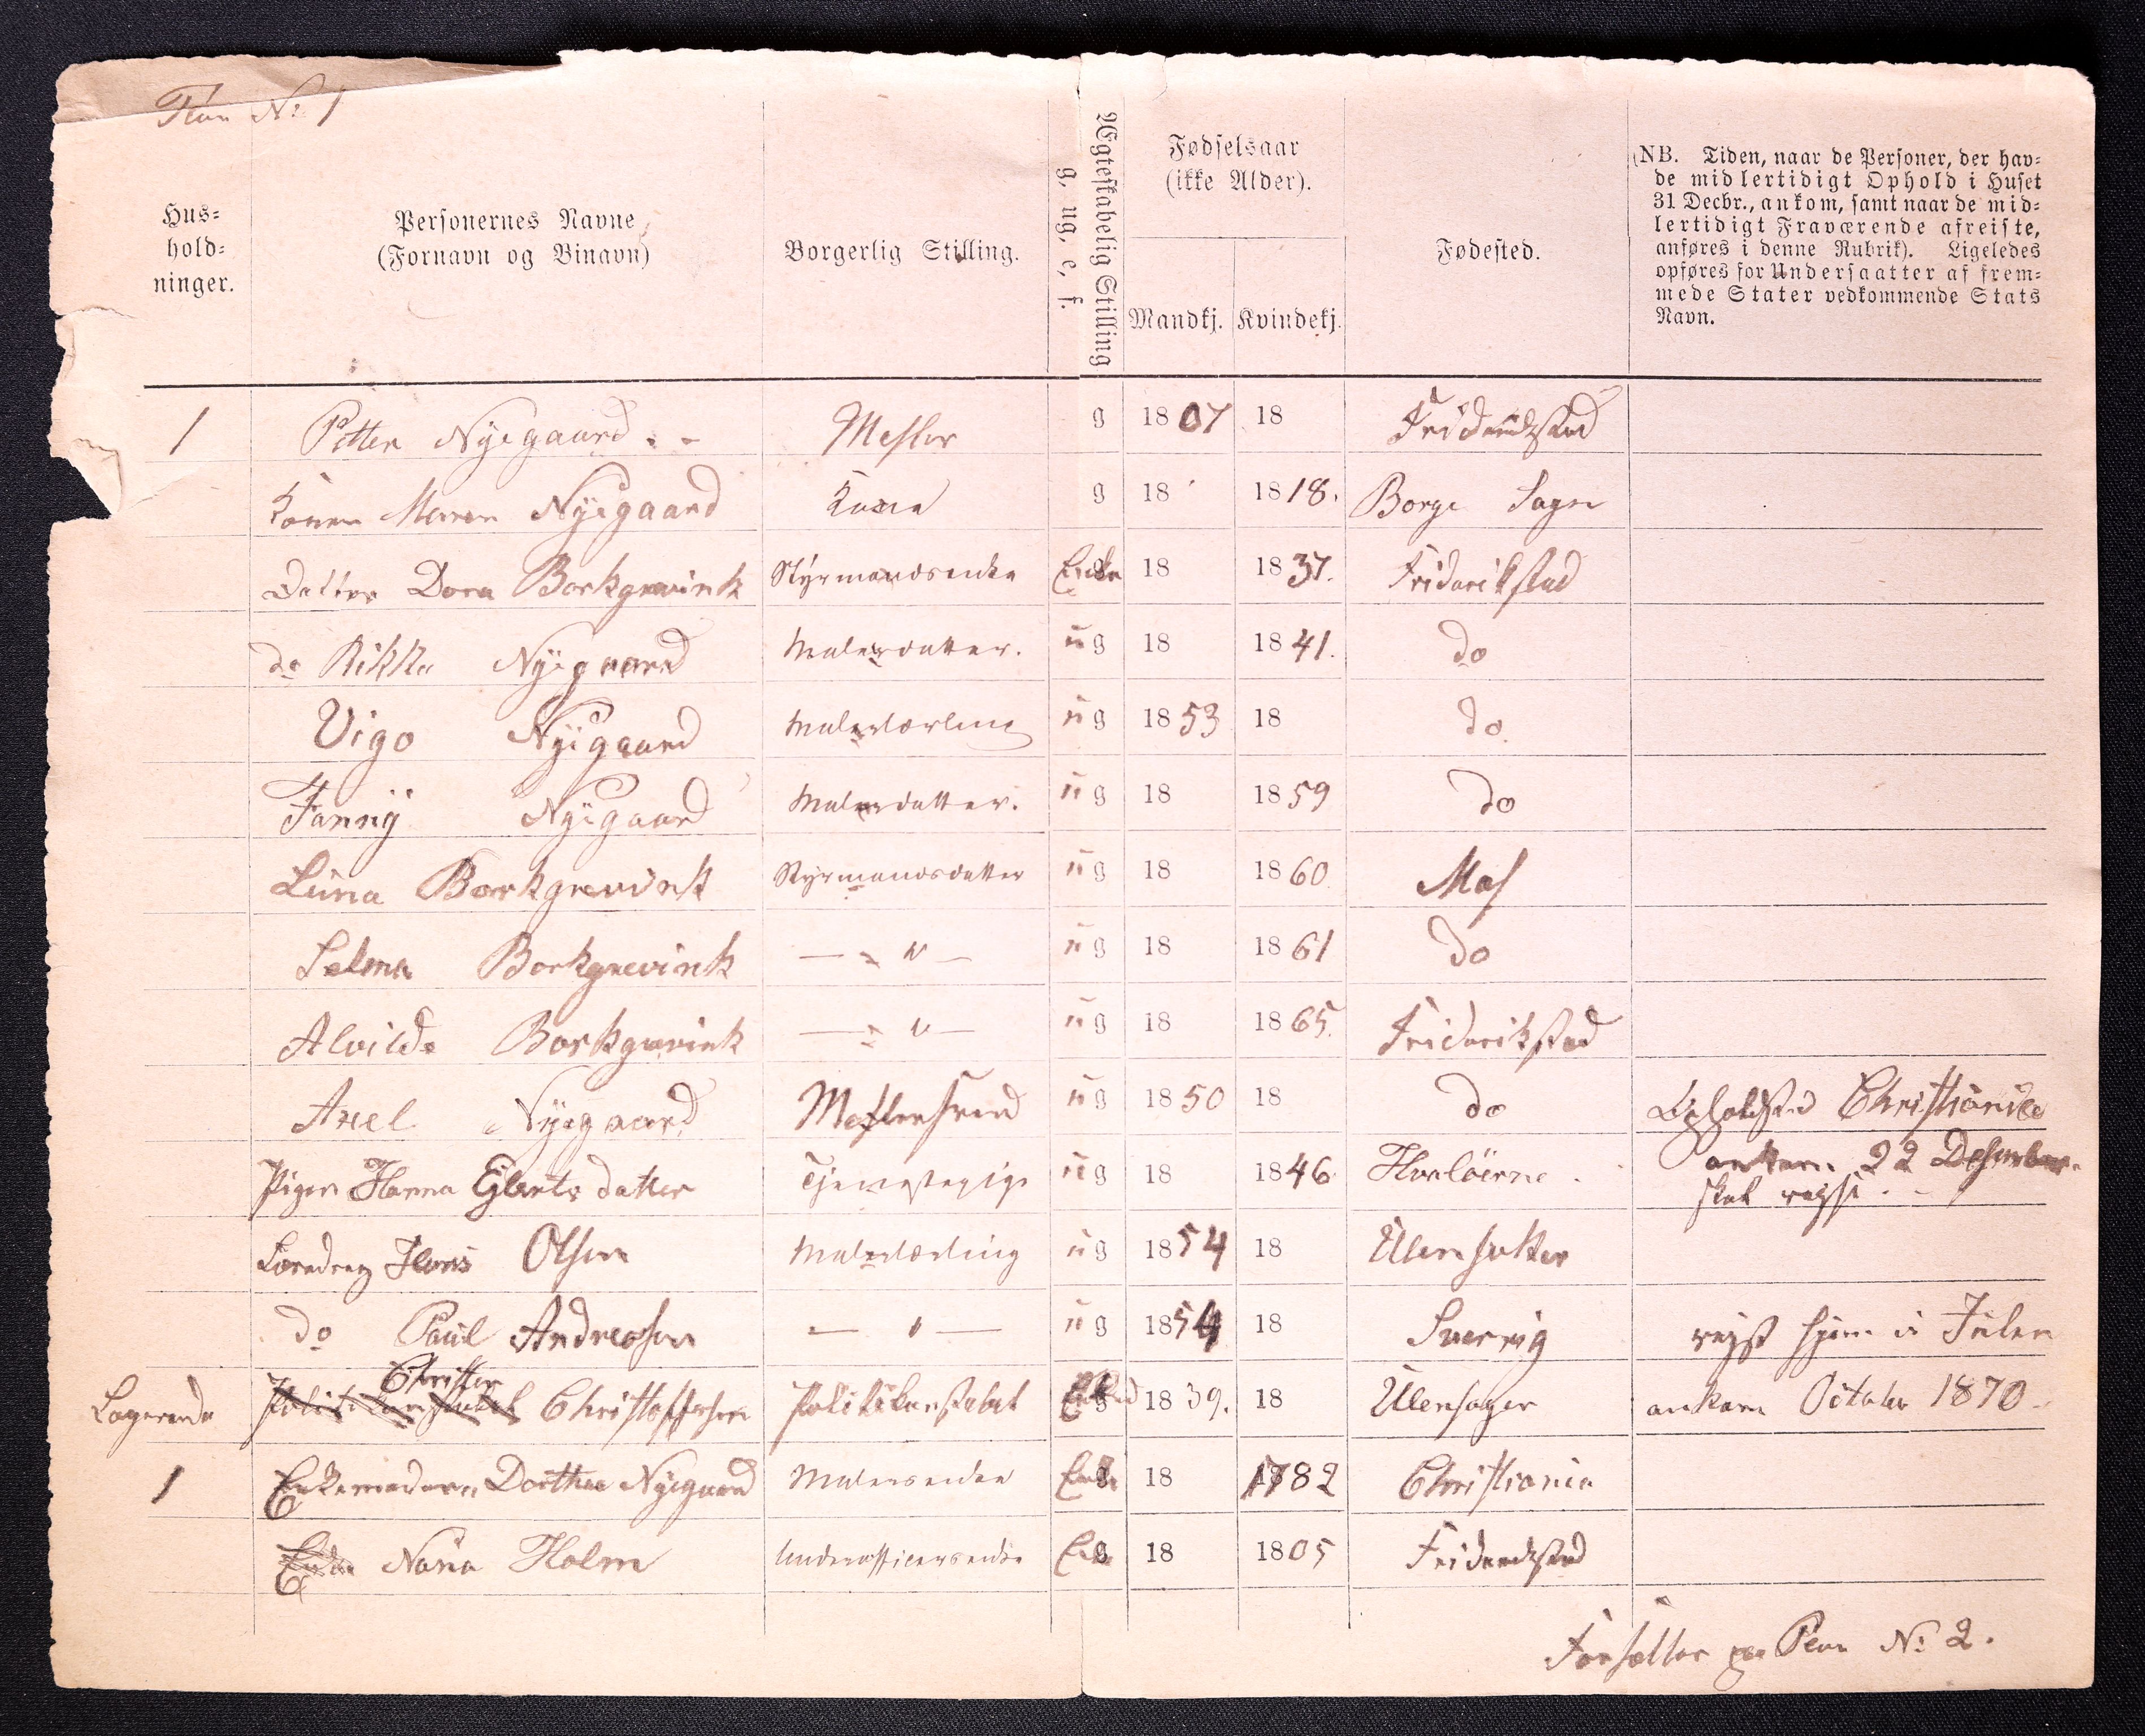 Plan No: 1
Hus-
hold-
ninger.
Personernes Navne
(Fornavn og Binavn)
Borgerlig Stilling.
Ægteskabelig Stilling
g, ug, e, f.
Fødselsaar
(ikke Alder).
Mandkj. Kvindekj.
Fødested.
(NB. Tiden, naar de Personer, der hav-
de midlertidigt Ophold i Huset
31 Decbr., ankom, samt naar de mid-
lertidigt Fraværende afreiste,
anføres i denne Rubrik). Ligeledes
opføres for Undersaatter af frem-
mede Stater vedkommende Stats
Navn.
1 Petter Nyegaard. - Mesler g 1807 18 Frideriksstad
Konen Maren Nyegaard Kone g 18 1818. Borge Sogn
Datter Dora Borkgrevink Styrmandsenke Enke g 18 1837. Friderikstad
do Rikka Nyegaard Malerdatter. ug 18 1841. do
Vigo Nyegaard Malerlærling ug 1853 18 do
Fanny Nyegaard Malerdatter. ug 18 1859 do
Luna Borkgrevink Styrmandsdatter ug 18 1860 Mos
Selma Borkgrevink — " — ug 18 1861 do
Alvilde Borkgrevink — " — ug 18 1865. Friderikstad
Axel Nyegaard Meslersvend ug 1850 18 do Opholdsted Christiania
ankom 22 Desember.
skal rejse. -
Pigen Hanna Ejlerts datter Tjenestepige ug 18 1846 Hvaløerne.
Læredreng Hans Olsen Malerlærling ug 1854 18 Ulensaker
do Paul Andreasen — " — ug 1854 18 Sverrig rejst hjem i Julen
Christen
Logerende Politikonstabel Christoffersen Politikonstabel Enkemd g 1839. 18 Ulensager ankom Octaber 1870 -
1 Enkemadam Dorthea Nyegaard Malersenke Enke g 18 1782 Christiania
Enke Nana Holm Underofficersenke Enke g 18 1805 Frideriksstad
Forsætter paa Plan No: 2.